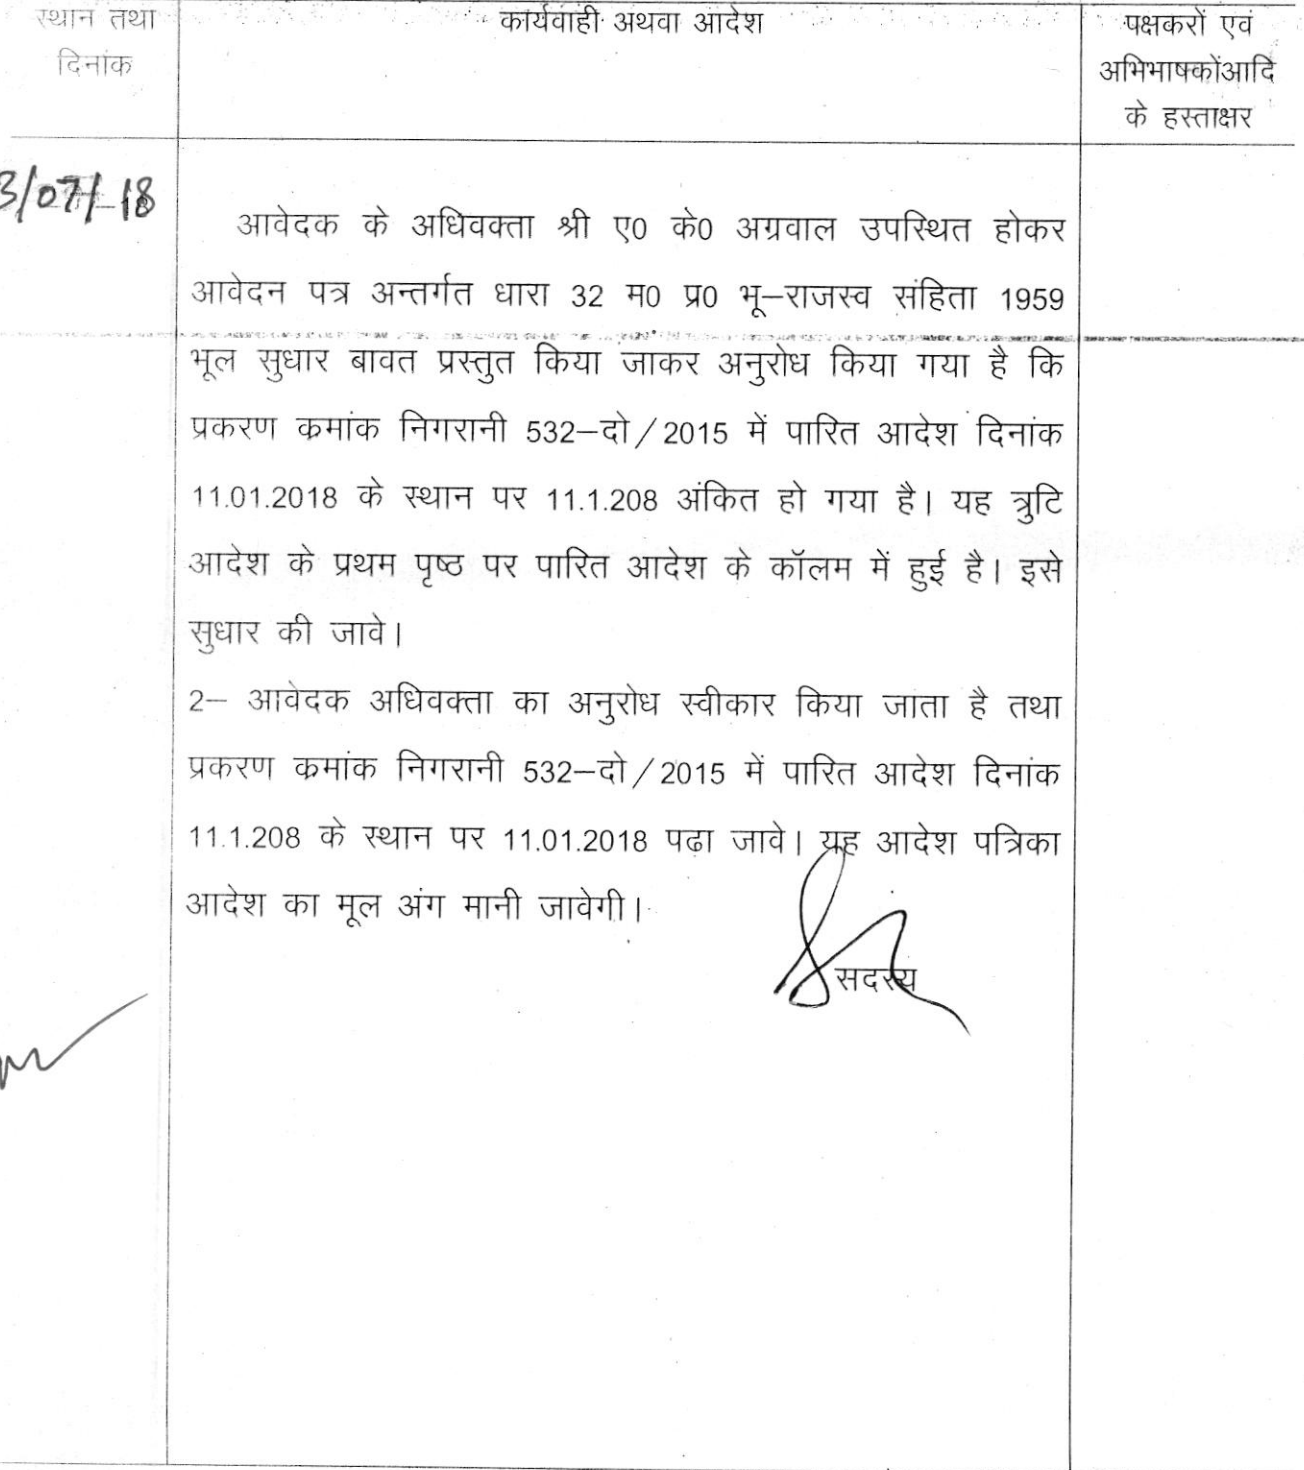 स्थान तथा
दिनांक
कार्यवाही अथवा आदेश
पक्षकरों एवं
अभिभाषकोंआदि
के हस्ताक्षर
3/07/18
आवेदक के अधिवक्ता श्री ए0 के0 अग्रवाल उपस्थित होकर
आवेदन पत्र अन्तर्गत धारा 32 म0 प्र0 भू–राजस्व संहिता 1959
भूल सुधार बावत प्रस्तुत किया जाकर अनुरोध किया गया है कि
प्रकरण कमांक निगरानी 532–दो/2015 में पारित आदेश दिनांक
11.01.2018 के स्थान पर 11.1.208 अंकित हो गया है। यह त्रुटि
आदेश के प्रथम पृष्ठ पर पारित आदेश के कॉलम में हुई है। इसे
सुधार की जावे।
2– आवेदक अधिवक्ता का अनुरोध स्वीकार किया जाता है तथा
प्रकरण कमांक निगरानी 532–दो/2015 में पारित आदेश दिनांक
11.1.208 के स्थान पर 11.01.2018 पढ़ा जावे। यह आदेश पत्रिका
आदेश का मूल अंग मानी जावेगी।
सदस्य